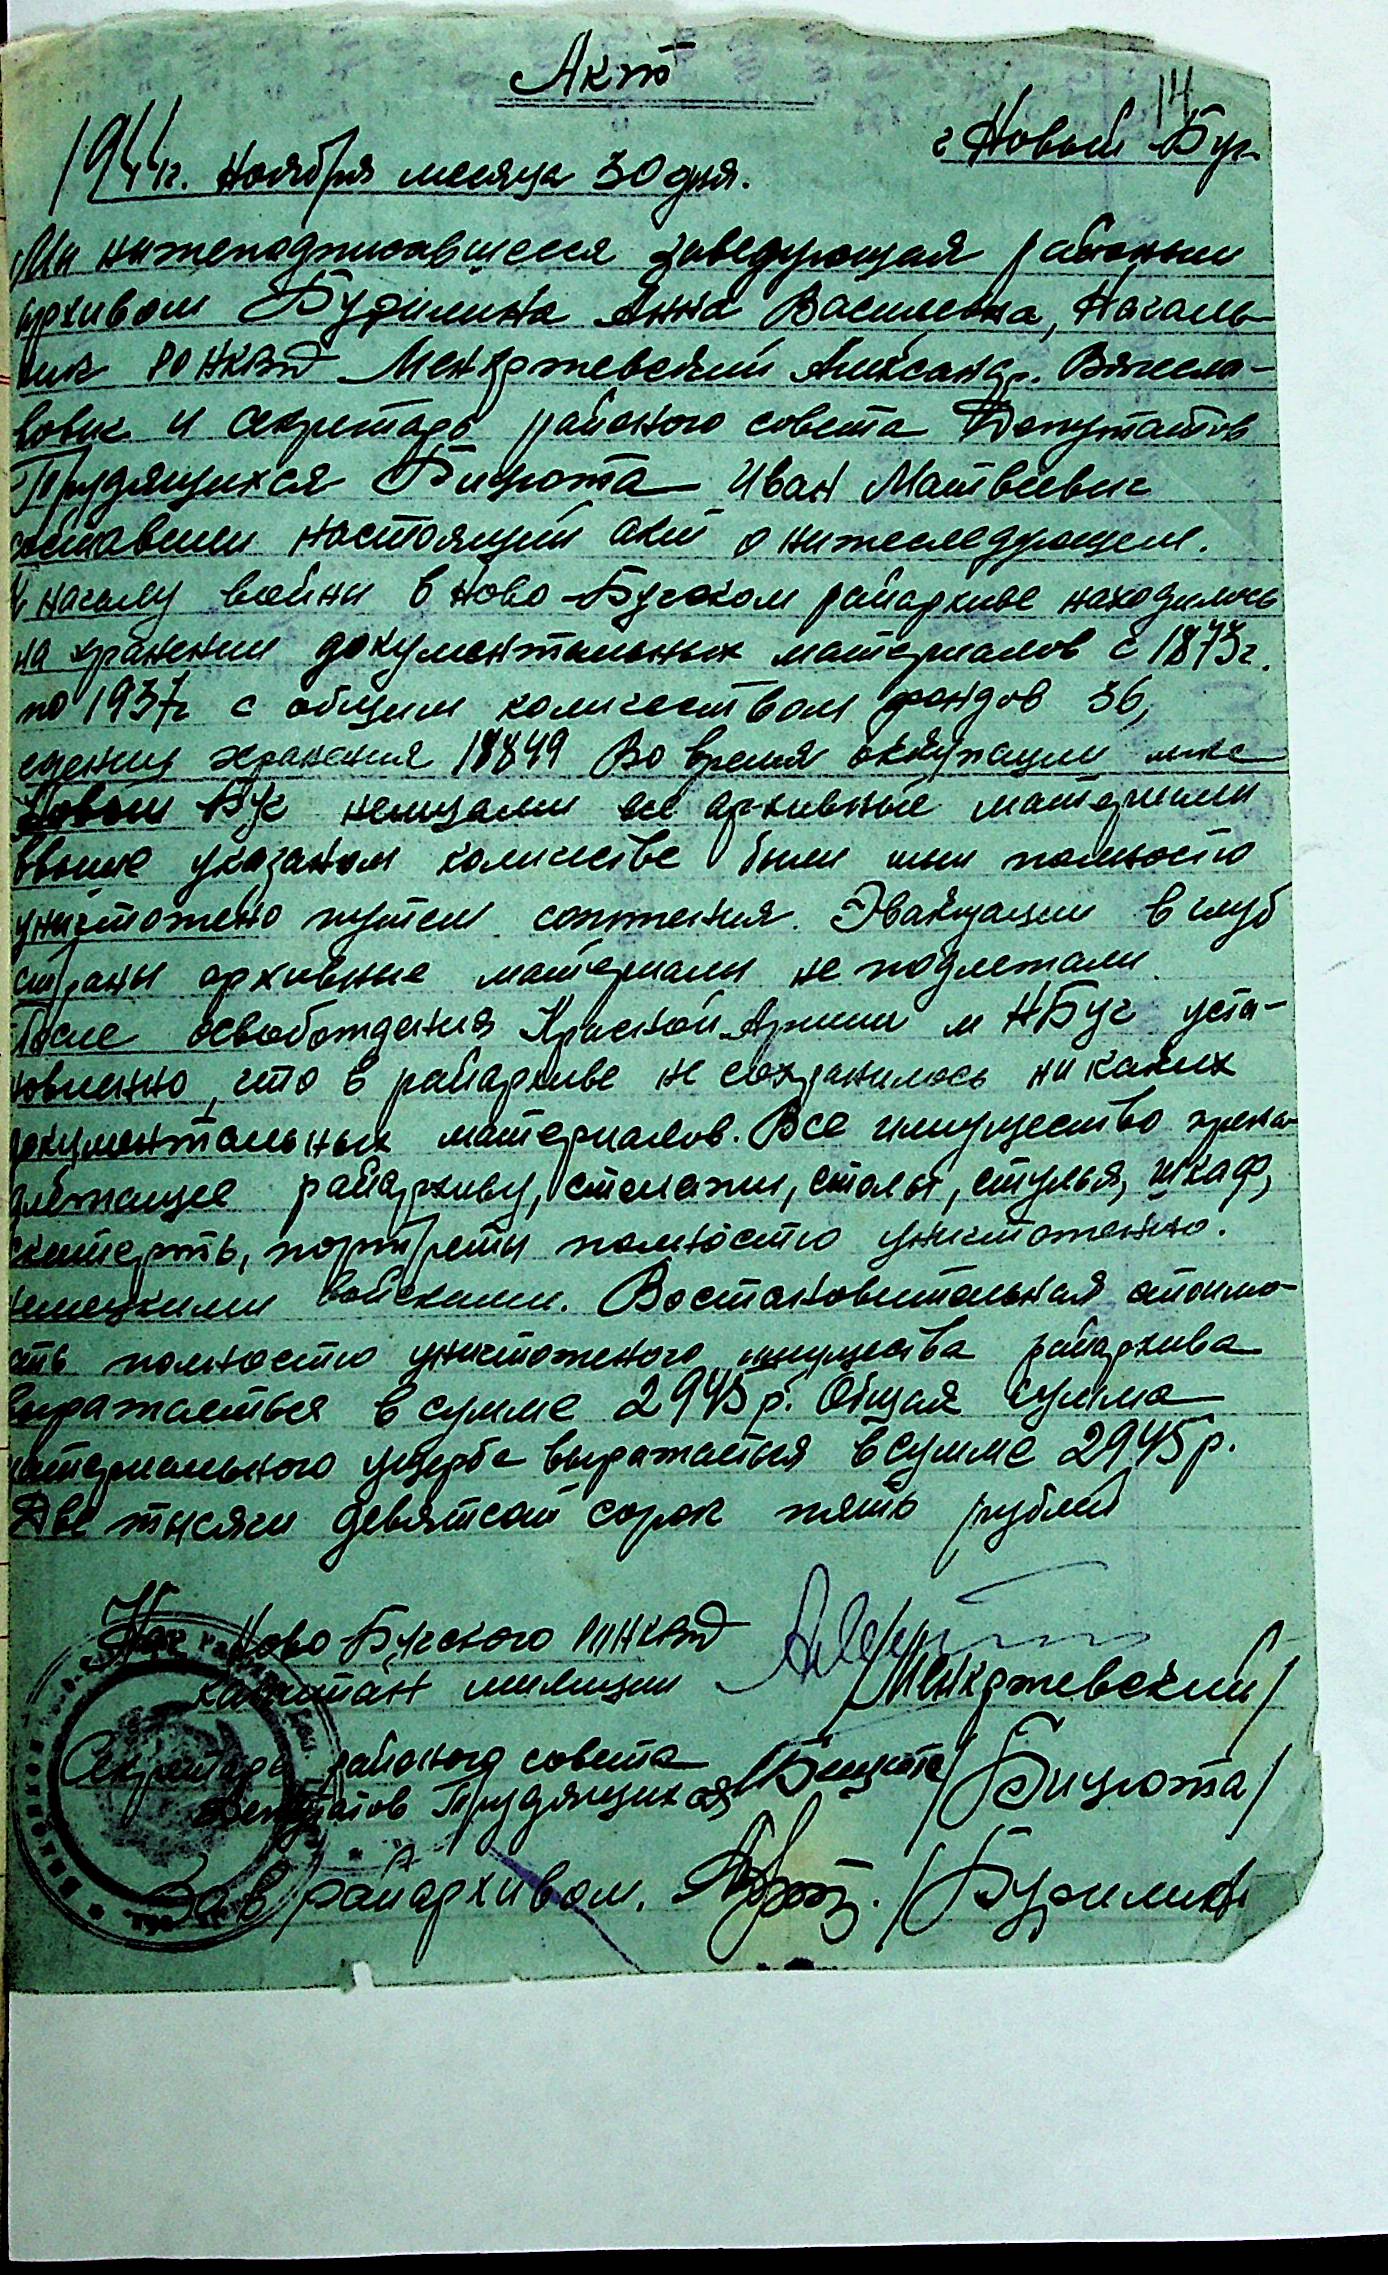 Акт
14
г Новый Буг
1944г. Ноября месяца 30 дня.
Мы нижеподписавшееся заведующая районым
архивом Анна Васильевна, Началь-
ник РОНКВД Менкржевский Александр. Вячесла-
вович и секретарь районого совета Депутатов
Трудящихся Бицюта Иван Матвеевич
составили настоящий акт о нижеследующем.
К началу войны в Ново-Бугском райархиве находилось
на хранении документальных материалов с 1873г.
по 1937г с общим количеством фондов 36,
единиц хранения 18849 Во время оккупации
Новый Буг немцами все архивные материали
ввыше указаном количестве были ими полностю
уничтожено путем сожжения. Эвакуации в глуб
страны архивние материали не подлежали.
После освобождения Красной Армии м НБуг уста-
новленно, что в райархиве не сохранилось ни каких
документальных материалов. Все имущество прена-
длежащее райархиву, стелажи, столы, стулья, шкаф,
скатерть, портреты полностю уничтоженно.
немецкими войсками. Востановительная стоимо-
сть полностю уничтоженого имущества райархива
выражаеться в сумме 2945 р. Общая сумма
материального ущерба выражаеться в сумме 2945 р.
Две тысячи девятсот сорок пять рублей
Нач Ново-Бугского РОНКВД
капитан милиции /Менкржевский/
Секретарь районого совета
депутатов Трудящихся Бицюта /Бицюта/
Зав райархивом.